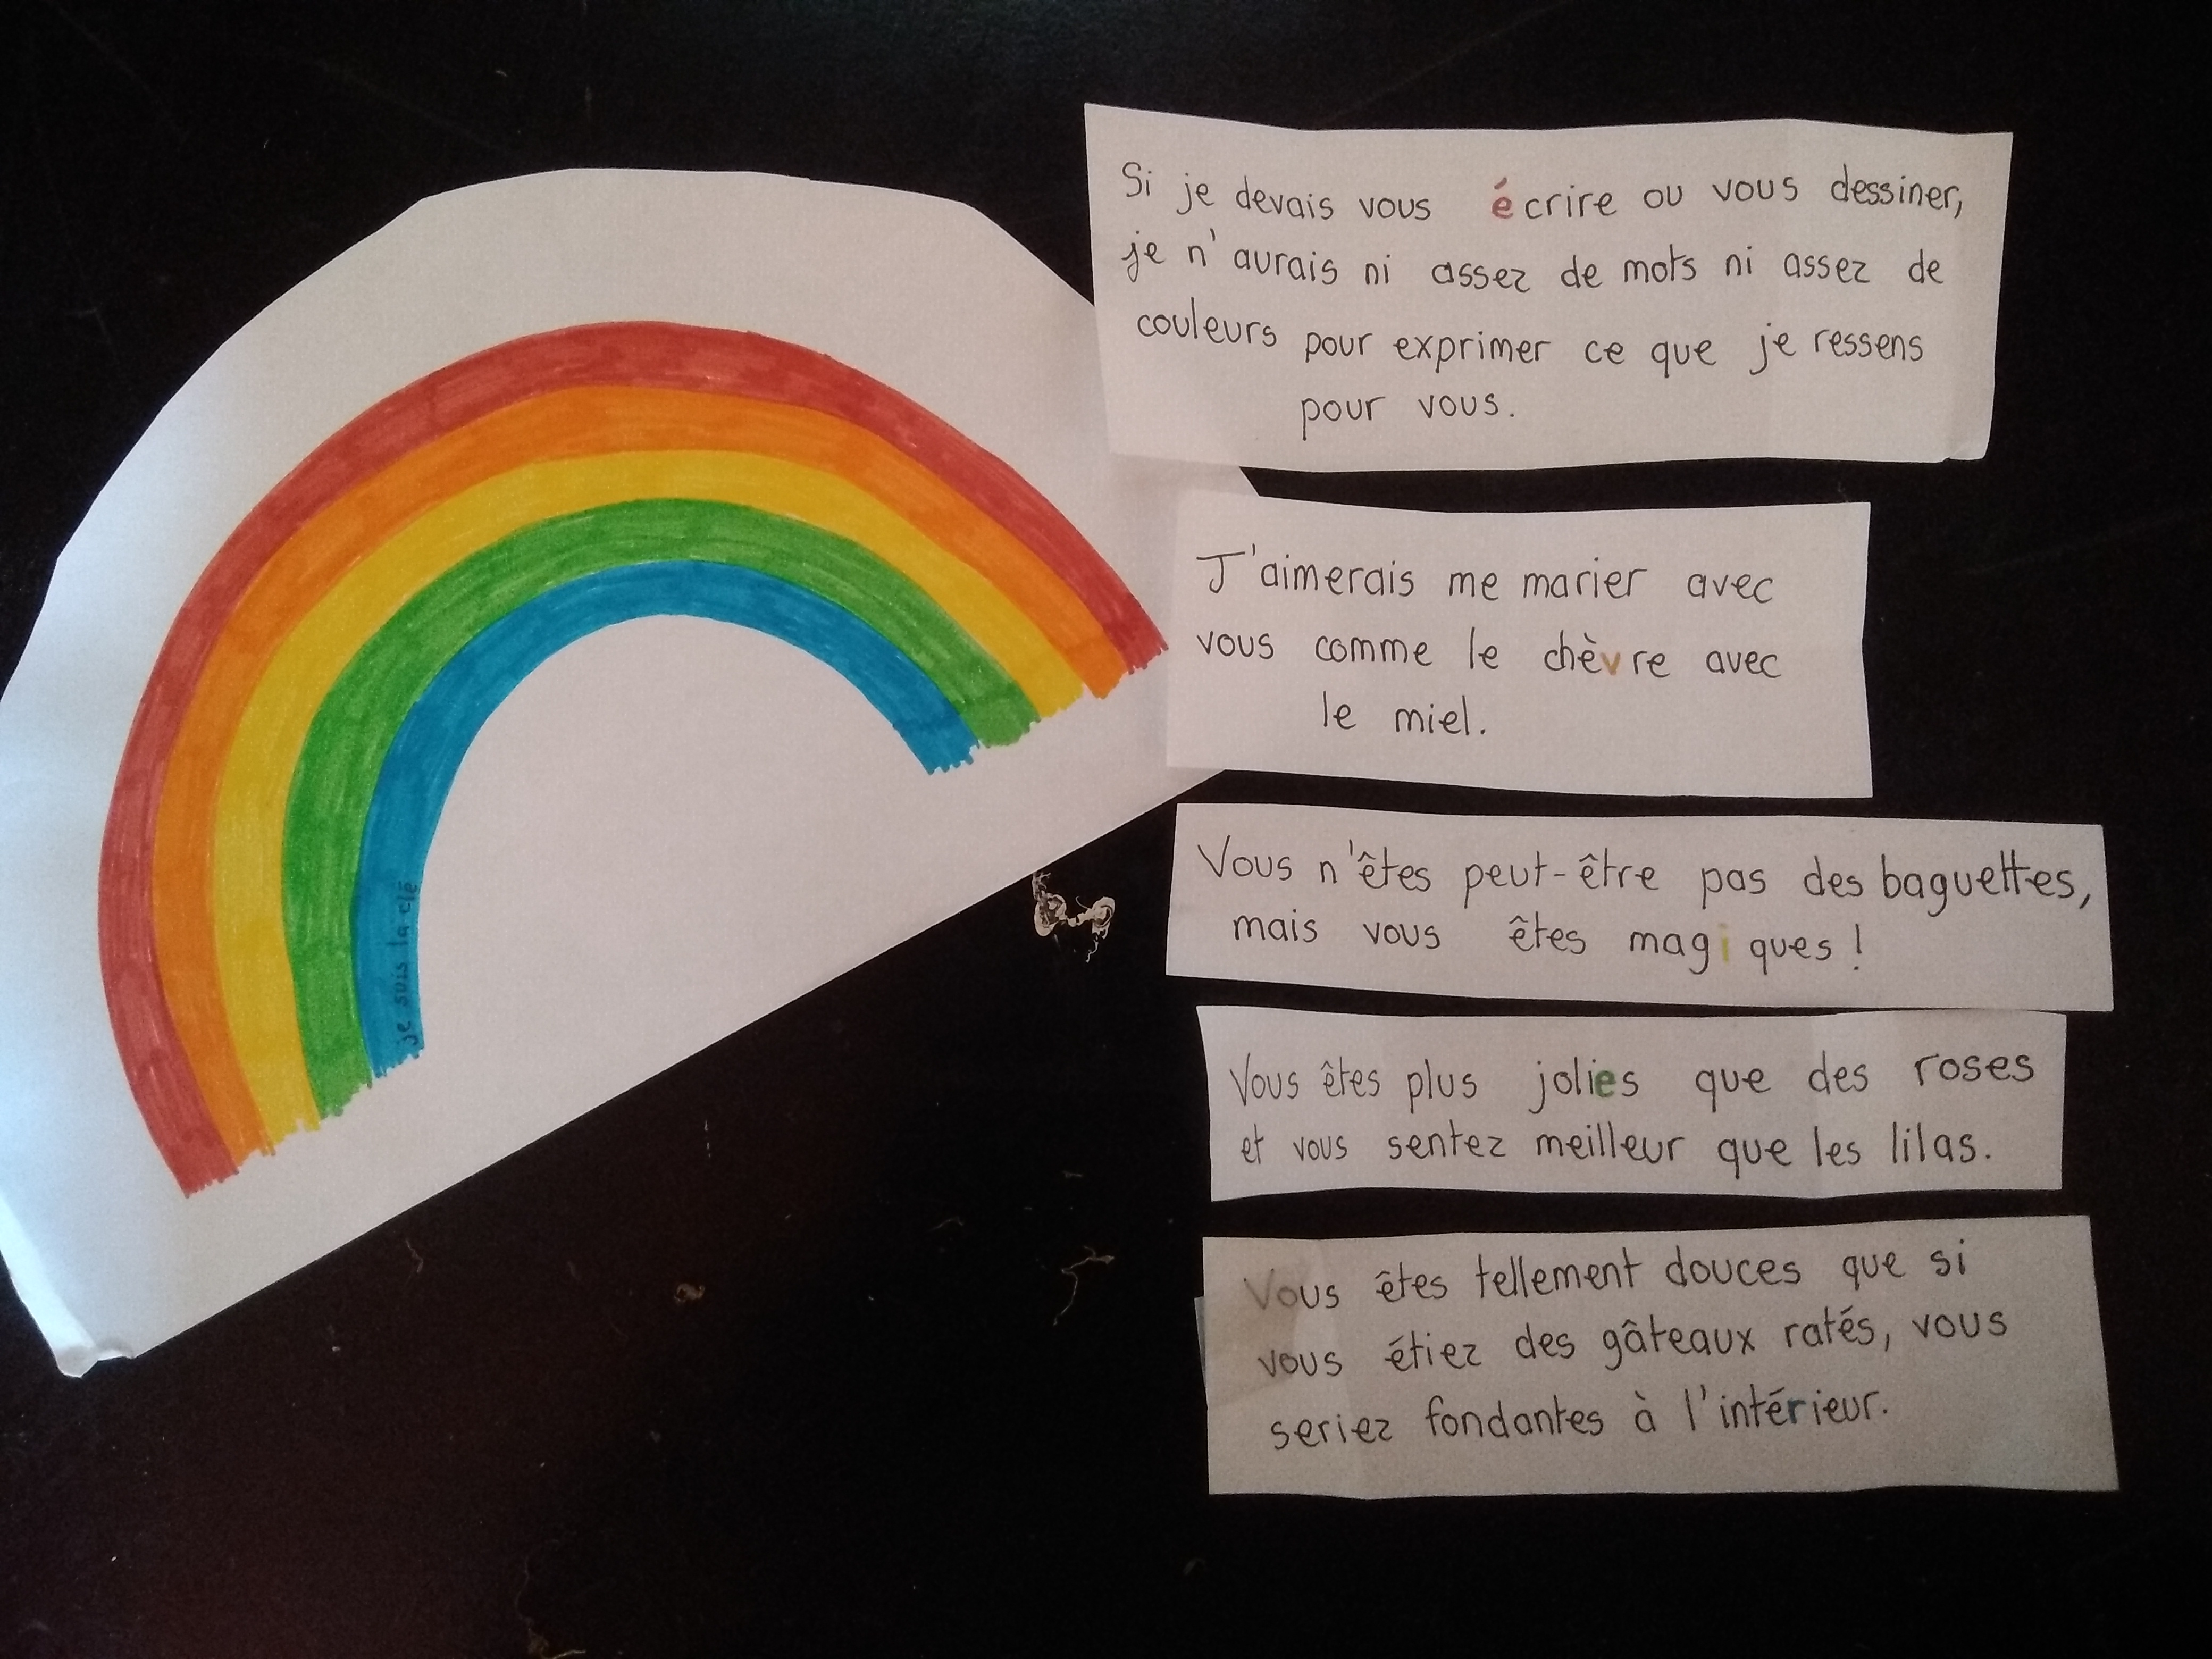 je suis la clé
Si je devais vous écrire ou vous dessiner,
je n'aurais ni assez de mots ni assez de
couleurs pour exprimer ce que je ressens
pour vous.
J'aimerais me marier avec
vous comme le chèvre avec
le miel.
Vous n'êtes peut-être pas des baguettes,
mais vous êtes magiques !
Vous êtes plus jolies que des roses
et vous sentez meilleur que les lilas.
Vous êtes tellement douces que si
vous étiez des gâteaux ratés, vous
seriez fondantes à l'intérieur.